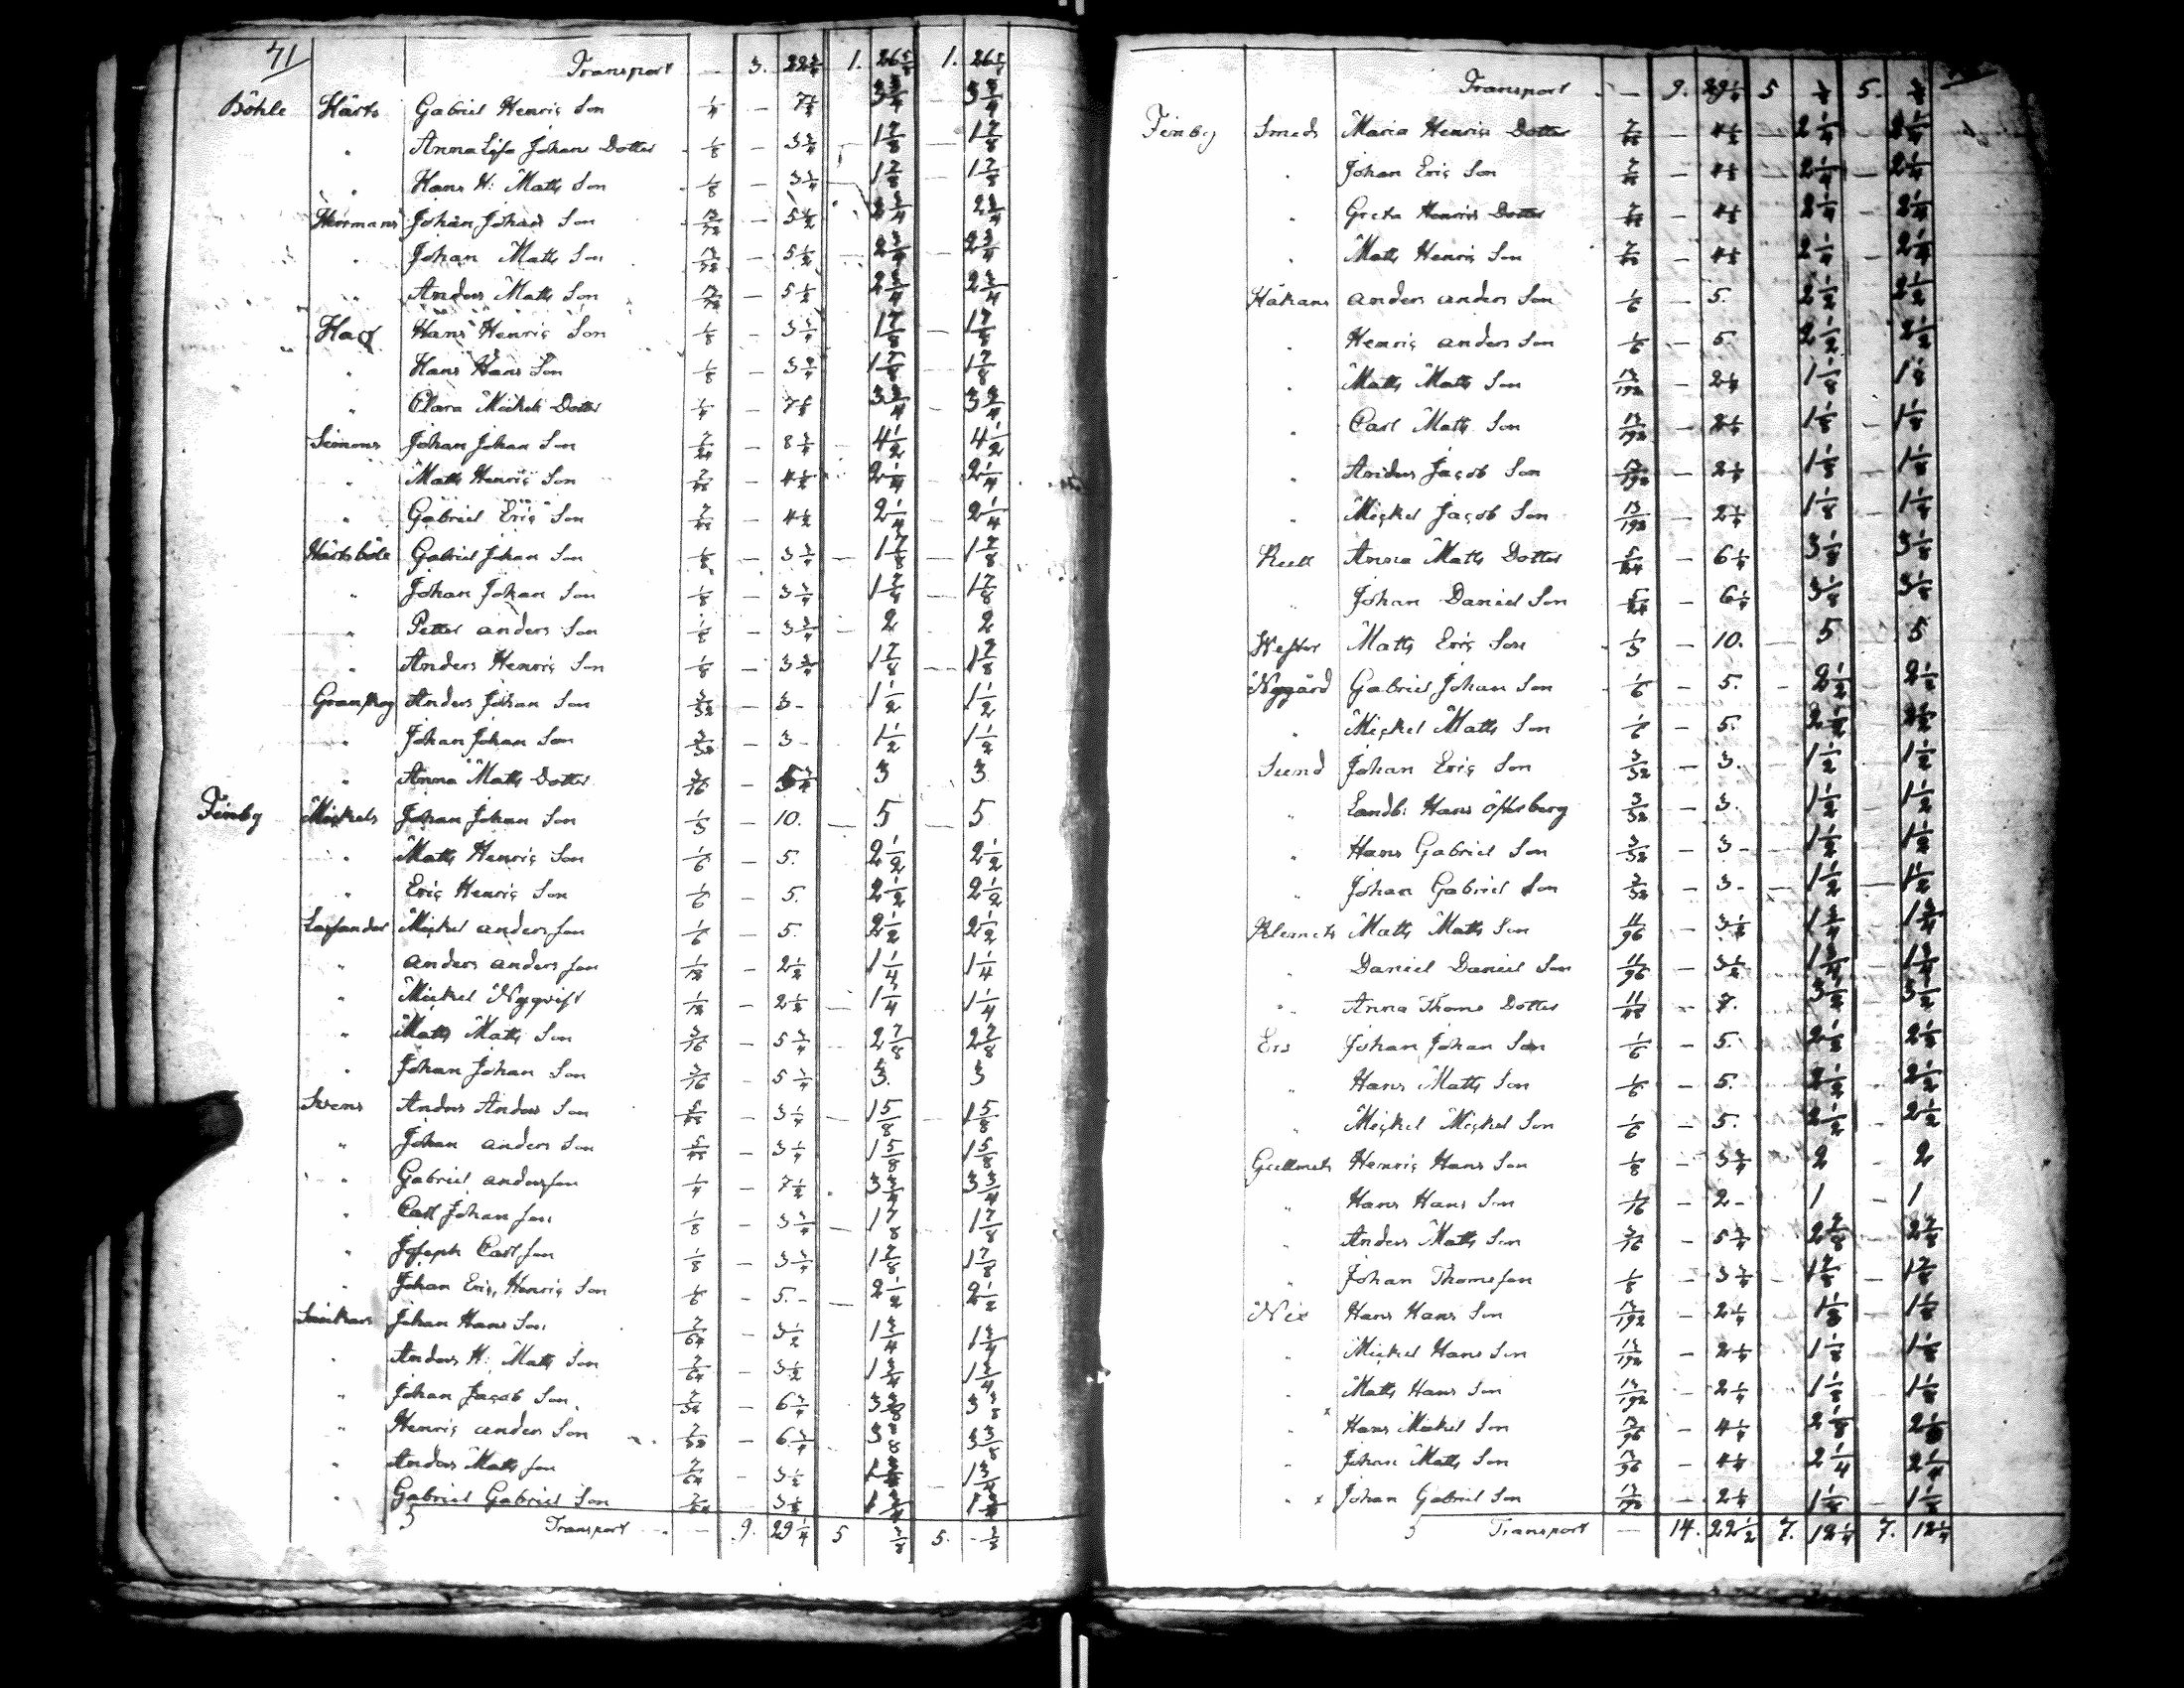 71
Transport - 3. 22 3/4 1. 26 5/8 1. 26 5/8
Böhle Härts Gabriel Henriç Son 1/4 - 7 1/2 3 3/4 - 3 3/4
" Anna Lisa Johans Dotter 1/8 - 3 3/4 - 1 7/8 - 1 7/8
" Hans H: Matts Son 1/8 - 3 3/4 - 1 7/8 - 1 7/8
Herrmans Johan Johans Son - 5 1/2 2 3/4 2 3/4
" Johan Matts Son - 5 1/2 - 2 3/4 - 2 3/4
" Anders Matts Son - 5 1/2 2 3/4 2 3/4
Hans Henriç Son 1/8 - 3 3/4 1 7/8 - 1 7/8
" Hans Hans Son 1/8 - 3 3/4 1 7/8 1 7/8
" Clara Mickels Dotter 1/4 - 7 1/2 3 3/4 - 3 3/4
Simons Johan Johan Son 7/24 - 8 3/4 - 4 1/2 4 1/2
" Matts Henriç Son 7/48 - 4 1/2 2 1/4 2 1/4
" Gabriel Eriç Son 7/48 - 4 1/2 2 1/4 - 2 1/4
Härtsböle Gabriel Johan Son 1/8 - 3 3/4 - 1 7/8 - 1 7/8
" Johan Johan Son 1/8 - 3 3/4 1 7/8 - 1 7/8
" Petter anders Son 1/8 - 3 3/4 - 2 2
" Anders Henriç Son 1/8 - 3 3/4 1 7/8 - 1 7/8
Granskog Anders Johan Son 3/32 - 3 - 1 1/2 1 1/2
" Johan Johan Son 3/32 - 3 - 1 1/2 1 1/2
" Anna Matts Dotter 3/16 - 3 3
Finby Mickels Johan Johan Son 1/3 - 10. - 5 - 5
" Matts Henriç Son 1/6 - 5. 2 1/2 2 1/2
" Eriç Henriç Son 1/6 - 5. 2 1/2 2 1/2
Mickel anders son 1/6 - 5. 2 1/2 2 1/2
" anders anders son 1/12 - 2 1/2 1 1/4 1 1/4
" Mickel Nyqvist 1/12 - 2 1/2 - 1 1/4 1 1/4
" Matts Matts Son 3/16 - 5 3/4 - 2 7/8 2 7/8
" Johan Johan Son 3/16 - 5 3/4 3. 3
Svens Anders Anders Son 5/48 - 3 1/4 - 1 5/8 - 1 5/8
" Johan anders Son 5/48 - 3 1/4 1 5/8 1 5/8
" Gabriel anders son 1/4 - 7 1/2 3 3/4 3 3/4
" Carl Johan son 1/8 - 3 3/4 - 1 7/8 1 7/8
" Joseph Carl son 1/8 - 3 3/4 1 7/8 1 7/8
" Johan Eriç, Henriç Son 1/6 - 5. - 2 1/2 2 1/2
Johan Hans Son 7/64 - 3 1/2 1 3/4 1 3/4
" Anders H: Matts Son 7/64 - 3 1/2 1 3/4 1 3/4
" Johan Jacob Son 7/32 - 6 3/4 3 3/8 3 3/8
" Henriç anders Son 7/32 - 6 3/4 3 3/8 3 3/8
" Anders Matts son 7/64 - 3 1/2 1 3/4 1 3/4
" Gabriel Gabriel Son 7/64 - 3 1/2 1 3/4 1 3/4
Transport - 9. 29 1/4 5 5.
Transport - 9. 29 1/4 5 5.
Finby Smeds Maria Henriçs Dotter 7/48 - 4 1/2 - 2 1/4 2 1/4
" Johan Eriç Son 7/48 - 4 1/2 - 2 1/4 - 2 1/4
" Greta Henriçs Dotter 7/48 - 4 1/2 2 1/4 - 2 1/4
" Matts Henriç Son 7/48 - 4 1/2 2 1/4 - 2 1/4
Håkans anders anders Son 1/6 - 5. 2 1/2 2 1/2
" Henriç anders Son 1/6 - 5. 2 1/2 2 1/2
" Matts Matts Son 13/192 - 2 1/4 1 1/8 1 1/8
" Carl Matts Son 13/192 - 2 1/4 1 1/8 - 1 1/8
" Anders Jacob Son 13/192 - 2 1/4 1 1/8 - 1 1/8
" Mickel Jacob Son 13/192 - 2 1/4 1 1/8 - 1 1/8
Anna Matts Dotter 5/24 - 6 1/4 3 1/8 3 1/8
" Johan Daniel Son 5/24 - 6 1/4 3 1/8 3 1/8
Wester Matts Eriç Son 1/3 - 10. - 5 5
Nygård Gabriel Johan Son 1/6 - 5. - 2 1/2 - 2 1/2
" Mickel Matts Son 1/6 - 5. 2 1/2 - 2 1/2
Sund Johan Eriç Son 3/32 - 3. 1 1/2 1 1/2
" Landb: Hans 3/32 - 3. 1 1/2 - 1 1/2
" Hans Gabriel Son 3/32 - 3 - 1 1/2 - 1 1/2
" Johan Gabriel Son 3/32 - 3 - 1 1/2 - 1 1/2
Klemets Matts Matts Son 11/96 - 3 1/2 1 3/4 1 3/4
" Daniel Daniel Son 11/96 - 3 1/2 1 3/4 - 1 3/4
" Anna Thoms Dotter 11/48 - 7. 3 1/2 - 3 1/2
Ers Johan Johan Son 1/6 - 5. 2 1/2 2 1/2
" Hans Matts Son 1/6 - 5. 2 1/2 2 1/2
" Mickel Mickel Son 1/6 - 5. 2 1/2 - 2 1/2
Gullmets Henriç Hans Son 1/8 - 3 3/4 2 - 2
" Hans Hans Son 1/16 - 2 - 1 - 1
" Anders Matts Son 3/16 - 5 3/4 2 7/8 2 7/8
" Johan Thoms son 1/8 - 3 3/4 - 1 7/8 - 1 7/8
Hans Hans Son 13/192 - 2 1/4 1 1/8 - 1 1/8
" Mickel Hans Son 13/192 - 2 1/4 1 1/8 - 1 1/8
" Matts Hans Son 13/192 - 2 1/4 1 1/8 1 1/8
" x Hans Mickel Son 13/96 - 4 1/4 2 1/8 2 1/8
" Johan Matts Son 13/96 - 4 1/4 2 1/4 2 1/4
" x Johan Gabriel Son 13/192 - 2 1/4 1 1/8 - 1 1/8
Transport - 14. 22 1/2 7. 12 1/4 7. 12 1/4